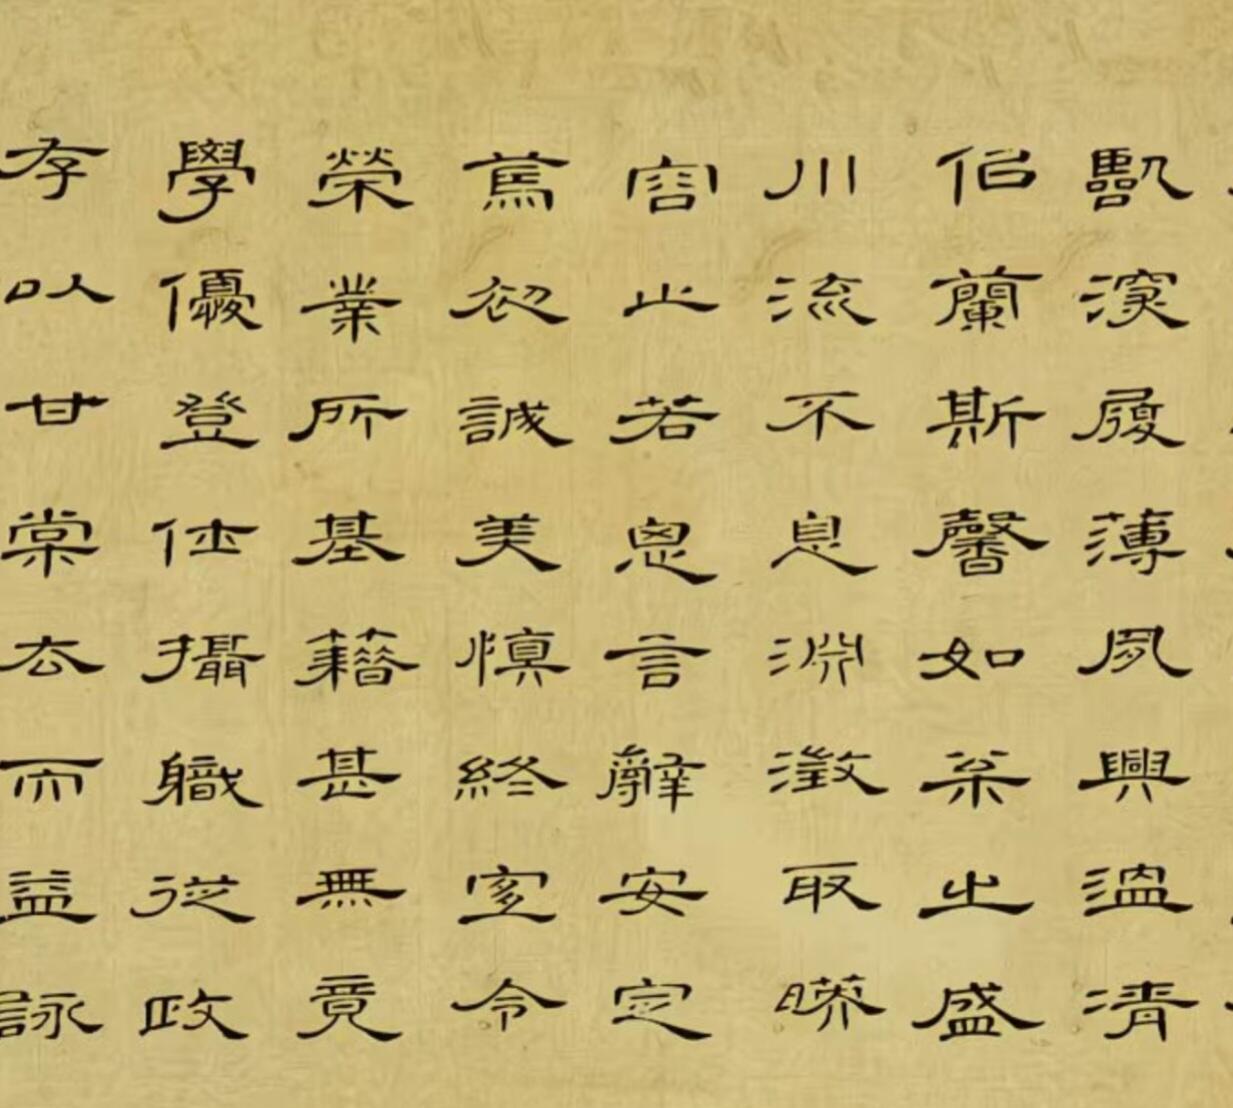 臨深履薄夙興溫凊
似蘭斯馨如松之盛
川流不息淵澂取暎
容止若思言辭安定
篤初誠美慎終宜令
榮業所基籍甚無竟
學優登仕攝職從政
存以甘棠去而益詠